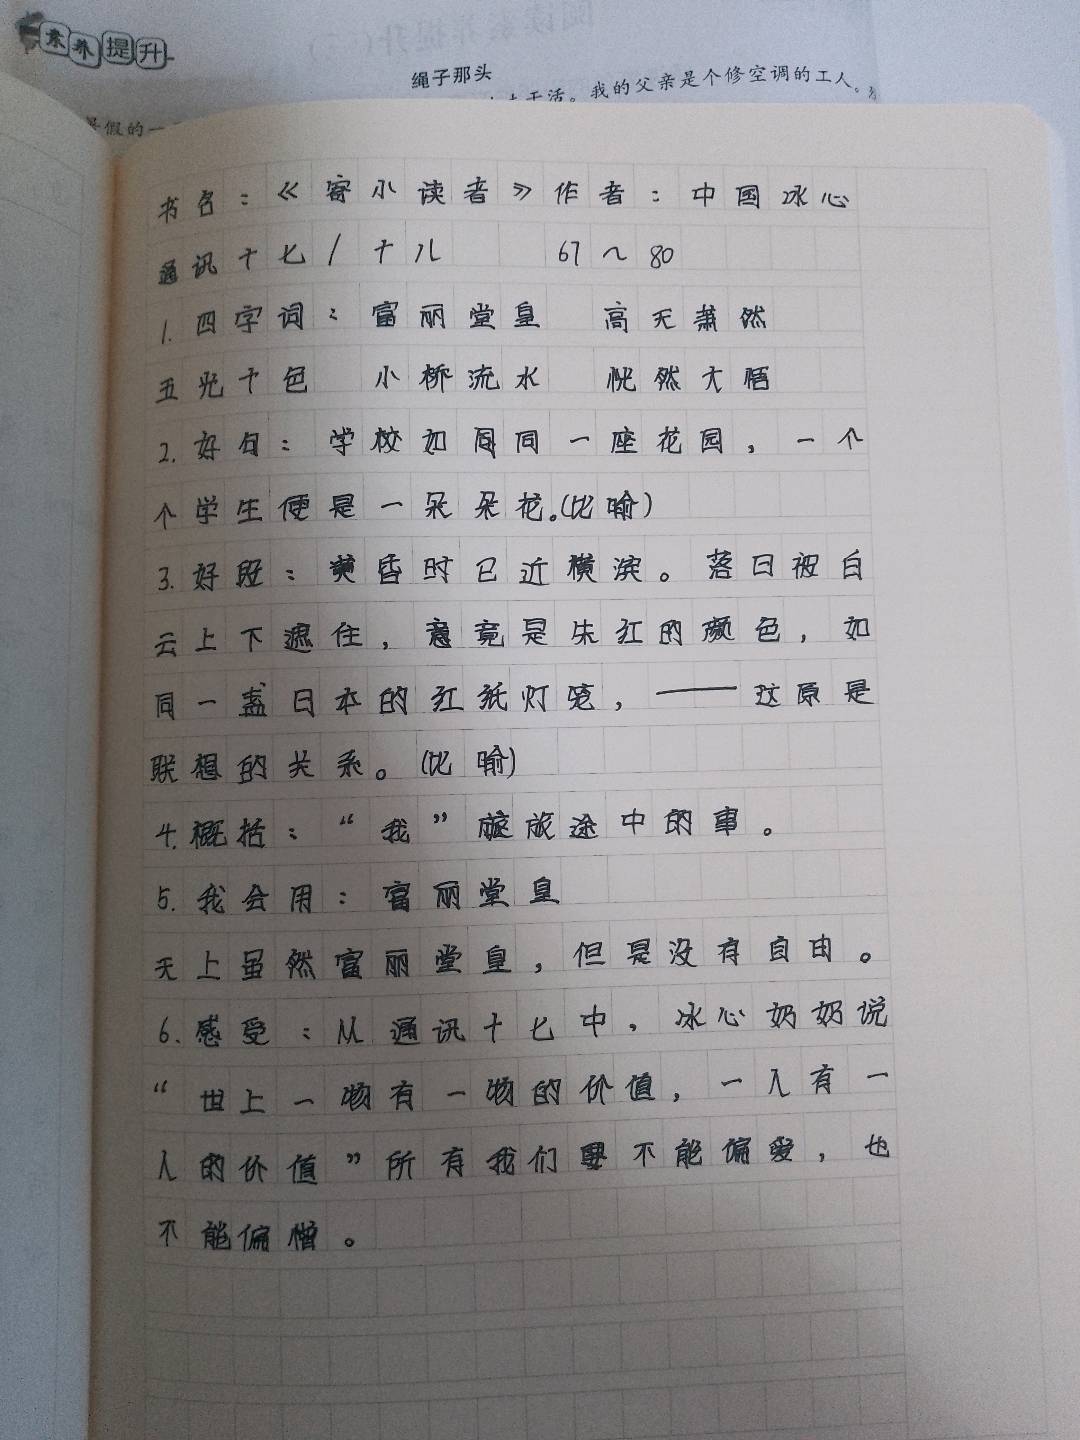 素养提升
绳子那头
干活。我的父亲是个修空调的工人。
假的一
书名：《寄小读者》作者：中国冰心
通讯十七/十八 67~80
1.四字词：富丽堂皇 高天萧然
五光十色 小桥流水 恍然大悟
2.好句：学校如同同一座花园，一个
个学生便是一朵朵花。(比喻)
3.好段：黄昏时已近横滨。落日被白
云上下遮住，竟是朱红的颜色，如
同一盏日本的红纸灯笼，——这原是
联想的关系。(比喻)
4.概括：“我”旅旅途中的事。
5.我会用：富丽堂皇
天上虽然富丽堂皇，但是没有自由。
6.感受：从通讯十七中，冰心奶奶说
“世上一物有一物的价值，一人有一
人的价值”所有我们不能偏爱，也
不能偏憎。